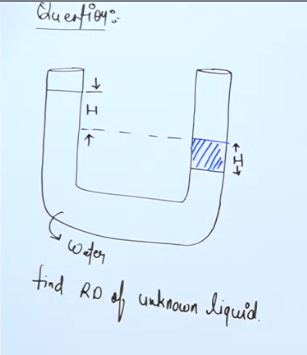 Question:-
H
H
Water
find RD of unknown liquid.